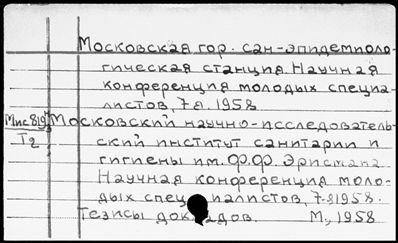 Московская гор. сан-эпидемиоло-
гическая станция. Научная
конференция молодых специа-
листов, 7-я. 1958
Мис819 Московский научно-исследователь-
Т2 ский институт санитарии и
гигиены им. Ф.Ф. Эрисмана
Научная конференция моло-
дых специалистов, 7-я 1958.
Тезисы докладов. М., 1958